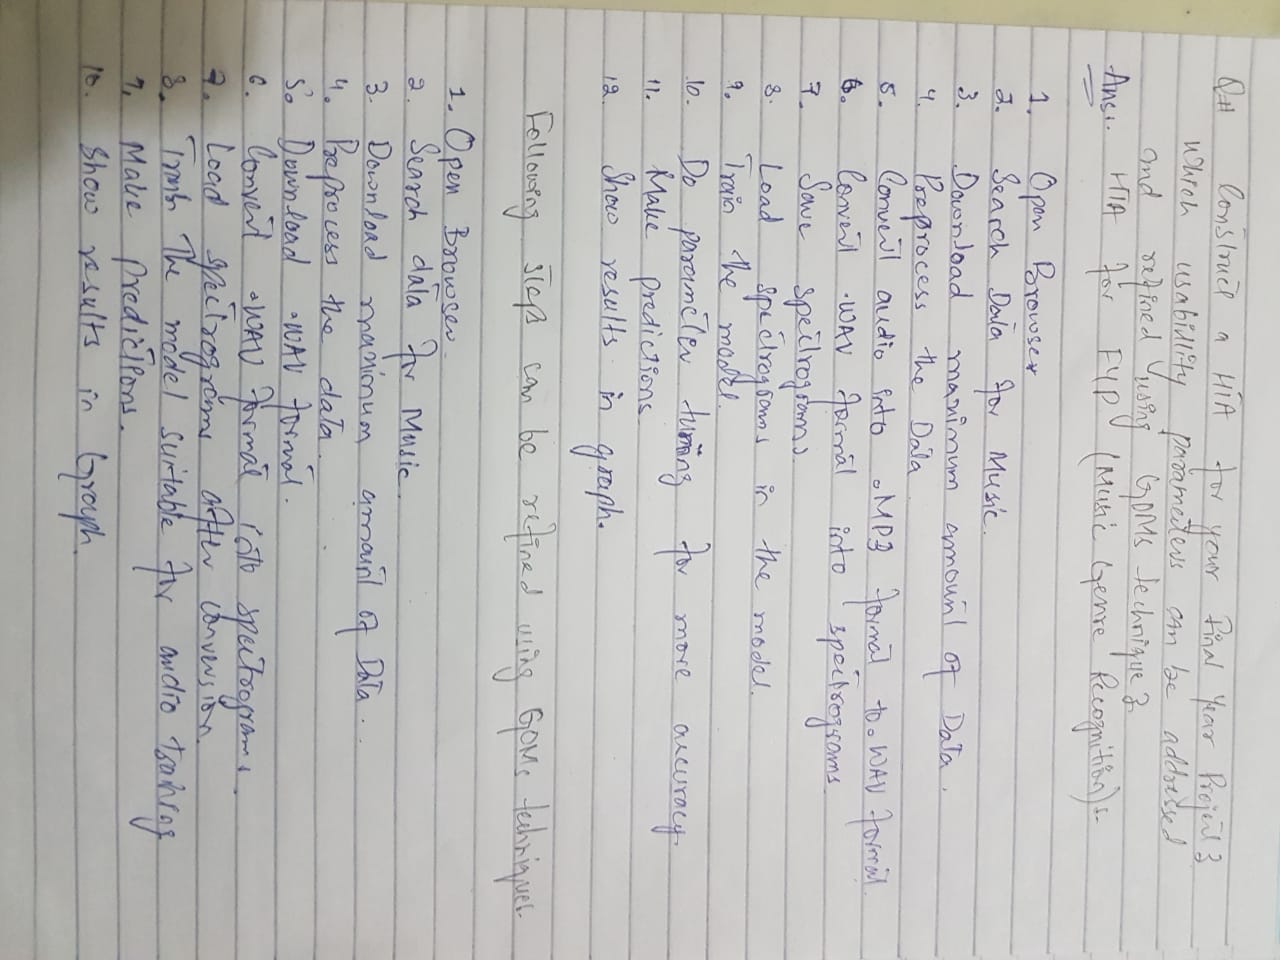 Q# Construct a HTA for your Final Year Project?
Which usabillity parameters can be addressed
and refined using GOMs technique?
Ans:. HTA for FYP (Music Genre Recognition):-
1. Open Browser
2. Search Data for Music.
3. Download maximum amount of Data.
4. Preprocess the Data
5. Convert audio into .MP3 format to .WAV format.
6. Convert .WAV format into spectrograms
7. Save spectrograms.
8. Load spectrograms in the model.
9. Train the model.
10. Do parameter tuning for more accuracy.
11. Make predictions
12. Show results in graph.
Following steps can be refined using GOMs techniques.
1. Open Browser.
2. Search data for Music.
3. Download maximum amount of Data..
4. Preprocess the data.
5. Download .WAV format.
6. Convert .WAV format into spectrograms.
7. Load spectrograms after conversion.
8. The model suitable for audio training
9. Make predictions.
10. Show results in Graph.